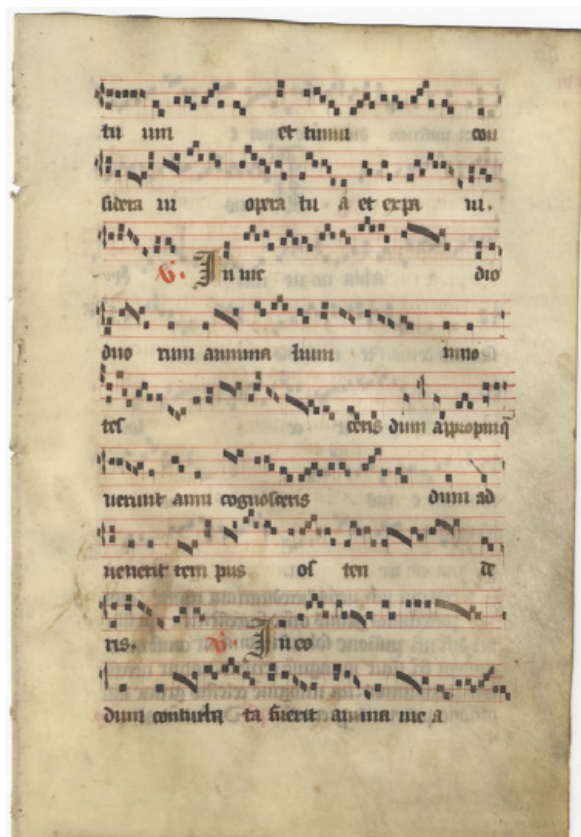 tu um et timui con
sidera ui opera tu a et expa ui.
V. In me dio
duo rum anima lium inno
tes ceris dum appropinq̄
uerint anni cognosceris dum ad
uenerit tem pus os ten de
ris. V. In eo
dum conturba ta fuerit anima me a